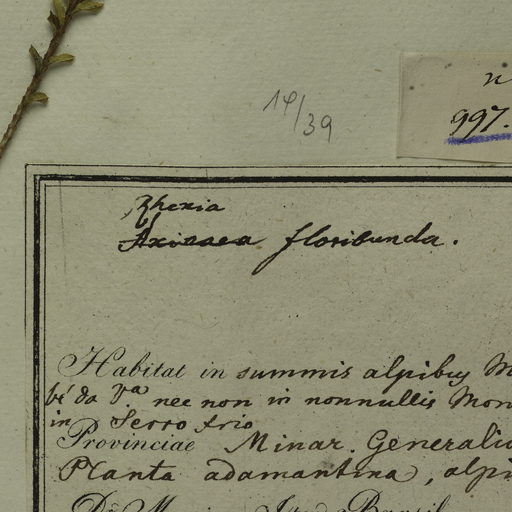 n
997.
14/39
Rhexia
Axinaea floribunda.
Habitat in summis alpibus M
da V.a nec non in nonnullis Mon
in Serro frio
Provinciae Minar. Generaliu
Planta adamantina, alpi
Dr. M Brasil